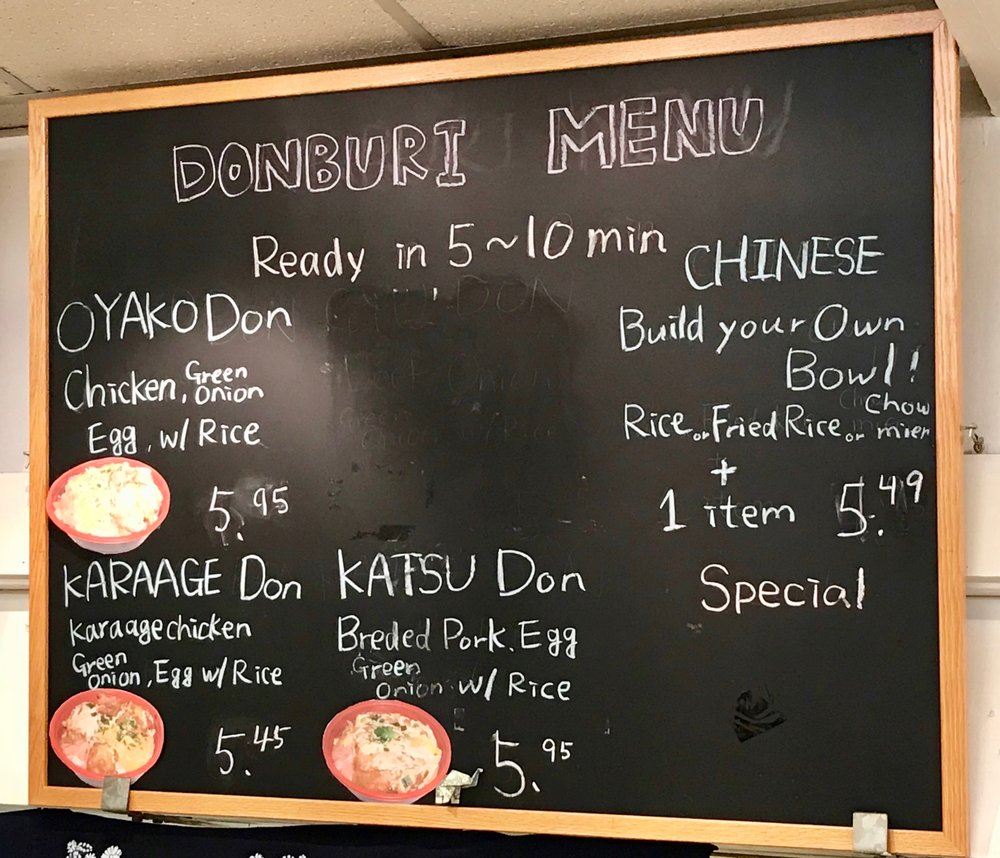 DONBURI MENU
Ready in 5~10 min
OYAKO Don
Chicken, Green Onion
Egg, w/ Rice
5.95
KARAAGE Don
Karaage chicken
Green Onion, Egg w/ Rice
5.45
KATSU Don
Breded Pork. Egg
Green Onion w/ Rice
5.95
CHINESE
Build your Own
Bowl!
Rice or Fried Rice or Chow mien
+
1 item 5.49
Special